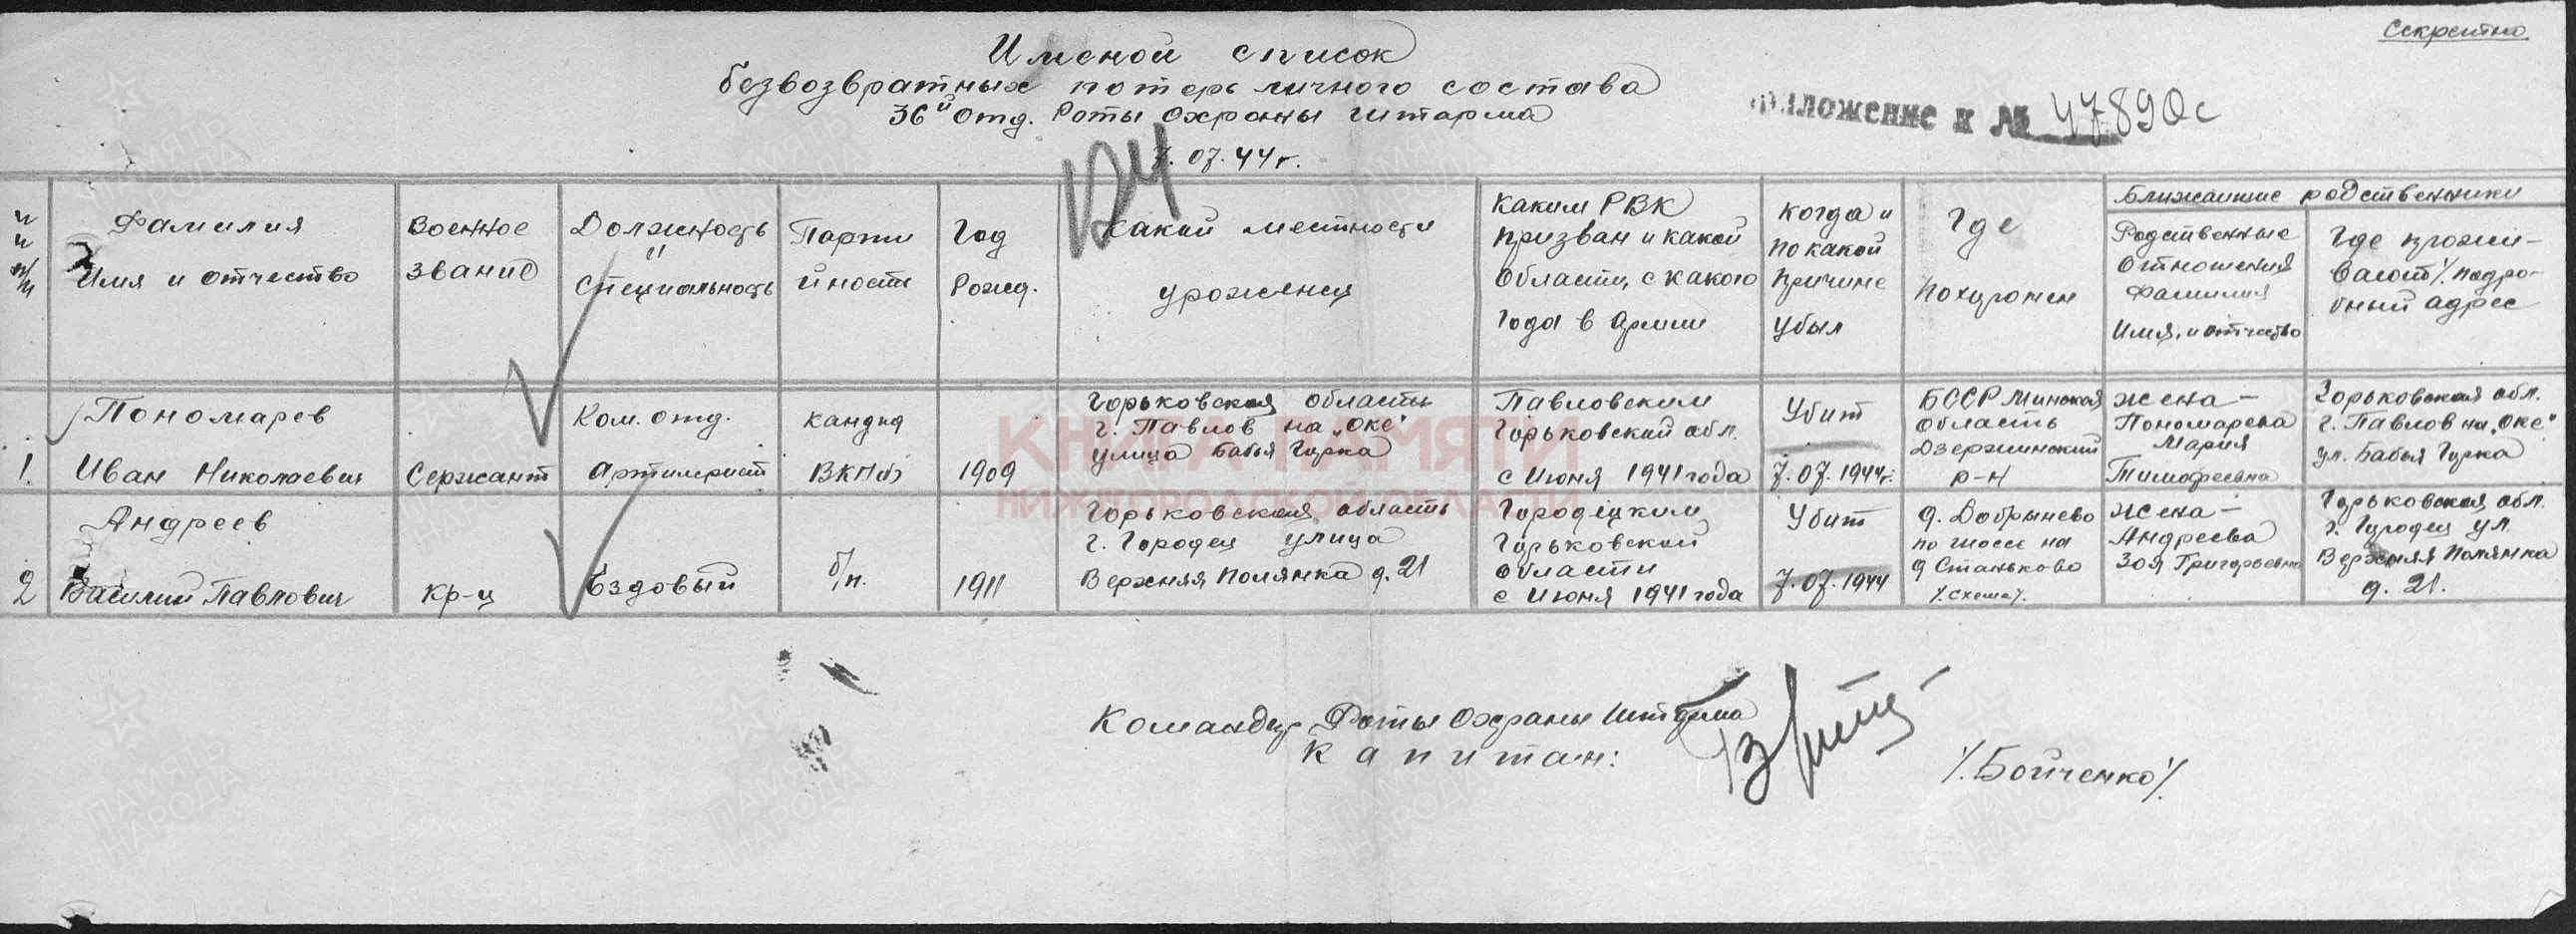 Секретно
Именой список
безвозвратных потерь личного состава
36й Отд. Роты Охраны Штарма
7.07.44г.
124
Приложение к № 47890с
Фамилия
Имя и отчество
Военное
звание
Должность
и
специальность
Парти
йность
Год
Рожд.
Какой местности
уроженец
Каким РВК
призван и какой
Области, с какого
Года в армии
Когда и
по какой
причине
убыл
Где
похоронен
Ближайшие родственники
Родственные
Отношения
Фамилия
Имя, и отчество
Где прожи-
вают /подро-
бный адрес
1.
Пономарев
Иван Николаевич
Сержант
Ком. отд.
Артилерист
кандид
ВКП(б)
1909
Горьковская область
г. Павлов на „Оке"
улица Бабья Горка
Павловским
Горьковской обл.
с Июня 1941 года
Убит
7.07.1944г.
БССР Минская
область
Дзержинский
р-н
жена –
Пономарева
Мария
Тимофеевна
Горьковская обл.
г. Павлов на „Оке"
ул. Бабья Горка
2
Андреев
Василий Павлович
Кр-ц
Ездовый
б/п.
1911
Горьковская область
г. Городец улица
Верхняя Полянка д. 21
Городецким
Горьковской
области
с Июня 1941 года
Убит
7.07.1944
д. Добрынево
по шоссе на
д Станьково
/.схема/.
жена –
Андреева
Зоя Григорьевна
Горьковская обл.
г. Городец ул.
Верхняя Полянка
д. 21.
Командир Роты Охраны Штарма
Капитан:
/.Бойченко/.
КНИГА ПАМЯТИ
НИЖЕГОРОДСКОЙ ОБЛАСТИ
ПАМЯТЬ
НАРОДА